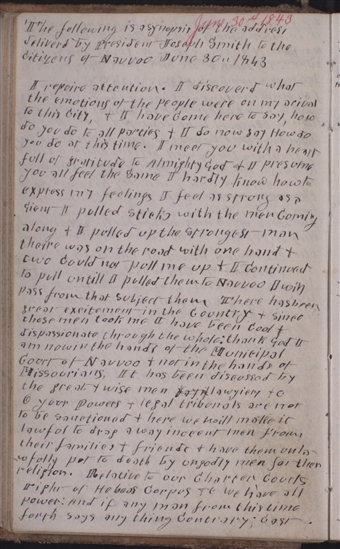 June 30th 1843
The following is a synopsis of the address
deliverd by President Joseph Smith to the
Citizens of Nauvoo June 30th 1843
I reqoire attention. I discoverd what
the emotions of the people were on my arival
to this City, & I have Come here to say, how
do you do to all parties & I do now say How do
you do at this time. I meet you with a heart
full of gratitude to Almighty God & I presume
you all feel the same I hardly know how to
express my feelings I feel as strong as a
Giant I pulled sticks with the men Coming
along & I pulled up the strongest man
theire was on the road with one hand &
two Could not pull me up & I Continued
to pull untill I pulled them to Nauvoo I will
pass from that subject there has been
great excitement in the Country & since
those men took me I have been Cool &
dispassionate through the whole; thank God I
am now in the hands of the Municipal
Court of Nauvoo & not in the hands of
Missourians, It has been discussed by
the great & wise men lawyiers &c
O your powers & legal tribunals are not
to be sanctioned & here we will make it
lawful to drag away inocent men from
their families & friends & have them unla-
wfully put to death by ungodly men for their
religion. Relative to our Charter Courts
right of Hebeas Corpus &c we have all
power; and if any man from this time
forth says any thing Contrary; Cast